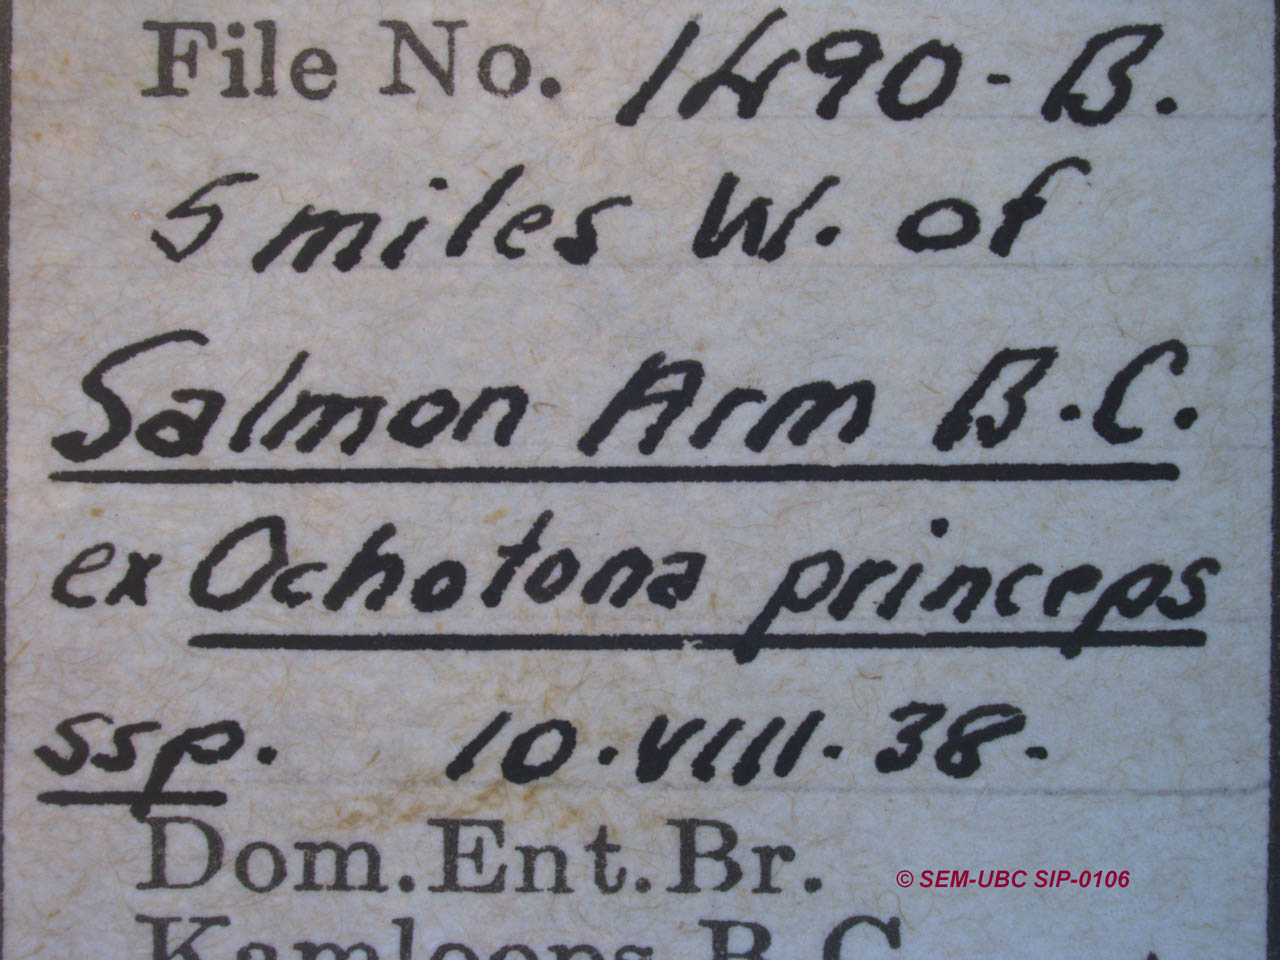 File No. 1490-B.
5 miles W. of
Salmon Arm B.C.
ex Ochotona princeps
ssp. 10.VIII.38.
Dom.Ent.Br.
© SEM-UBC SIP-0106
Kamloops B.C.